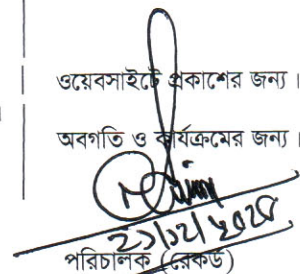 ওয়েবসাইটে প্রকাশের জন্য।
অবগতি ও কার্যক্রমের জন্য।
পরিচালক (রেকর্ড)